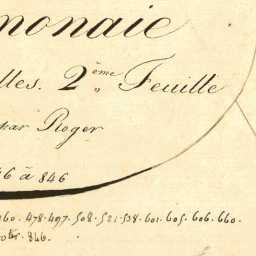 monnaie
lles. 2ème Feuille
par Roger
6 à 846
460. 478. 497. 508. 521. 538. 601. 605. 606. 660.
846.